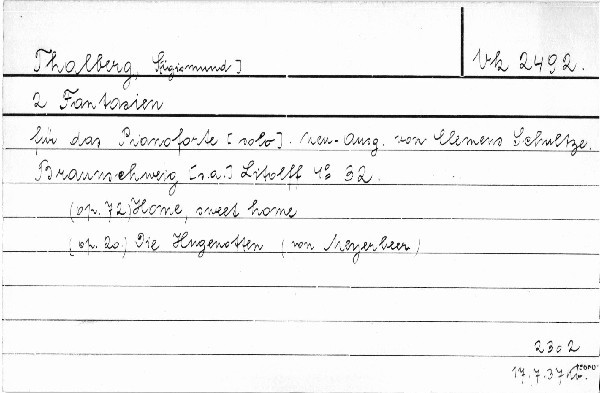 Thalberg, S[igismund] Vk 2492.
2 Fantasien
für das Pianoforte [solo]. Neu-Ausg. von Clemens Schultze.
Braunschweig [s.a.] Litolff 4° 32.
(op. 72) Home, sweet home
(op. 20.) Die Hugenotten (von Meyerbeer)
2302
17.7.37